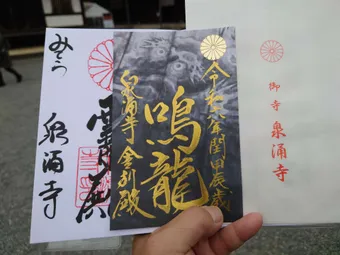 みてら
泉涌寺
令和六年閏甲辰歳
鳴龍
泉涌寺 舎利殿
御寺 泉涌寺